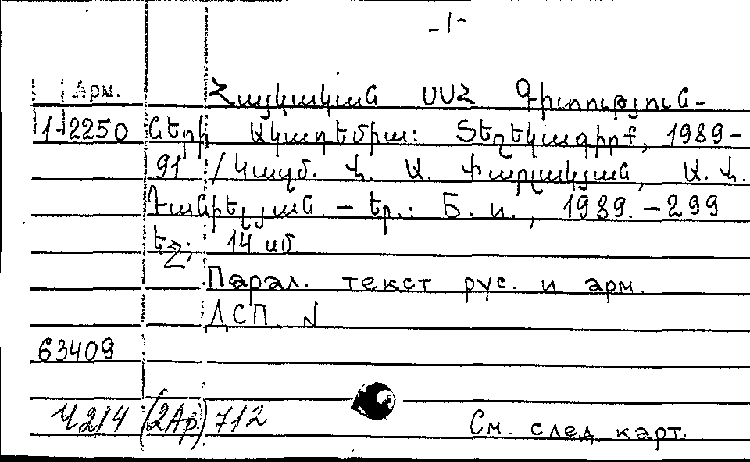 -1-
Арм.
Հայկական ՍՍՀ Գիտություն-
1-2250 ների Ակադեմիա: Տեղեկագիրք, 1989-
91 / Կազմ. Ի. Ա. Բարլակյան, Ա. Ի.
Դանիելյան – Եր.: Б. и., 1989. – 299
եջ; 14 սմ
Парал. текст рус. и арм.
ДСП. N
63409
Ч214 (2Ар) 712
См. след. карт.